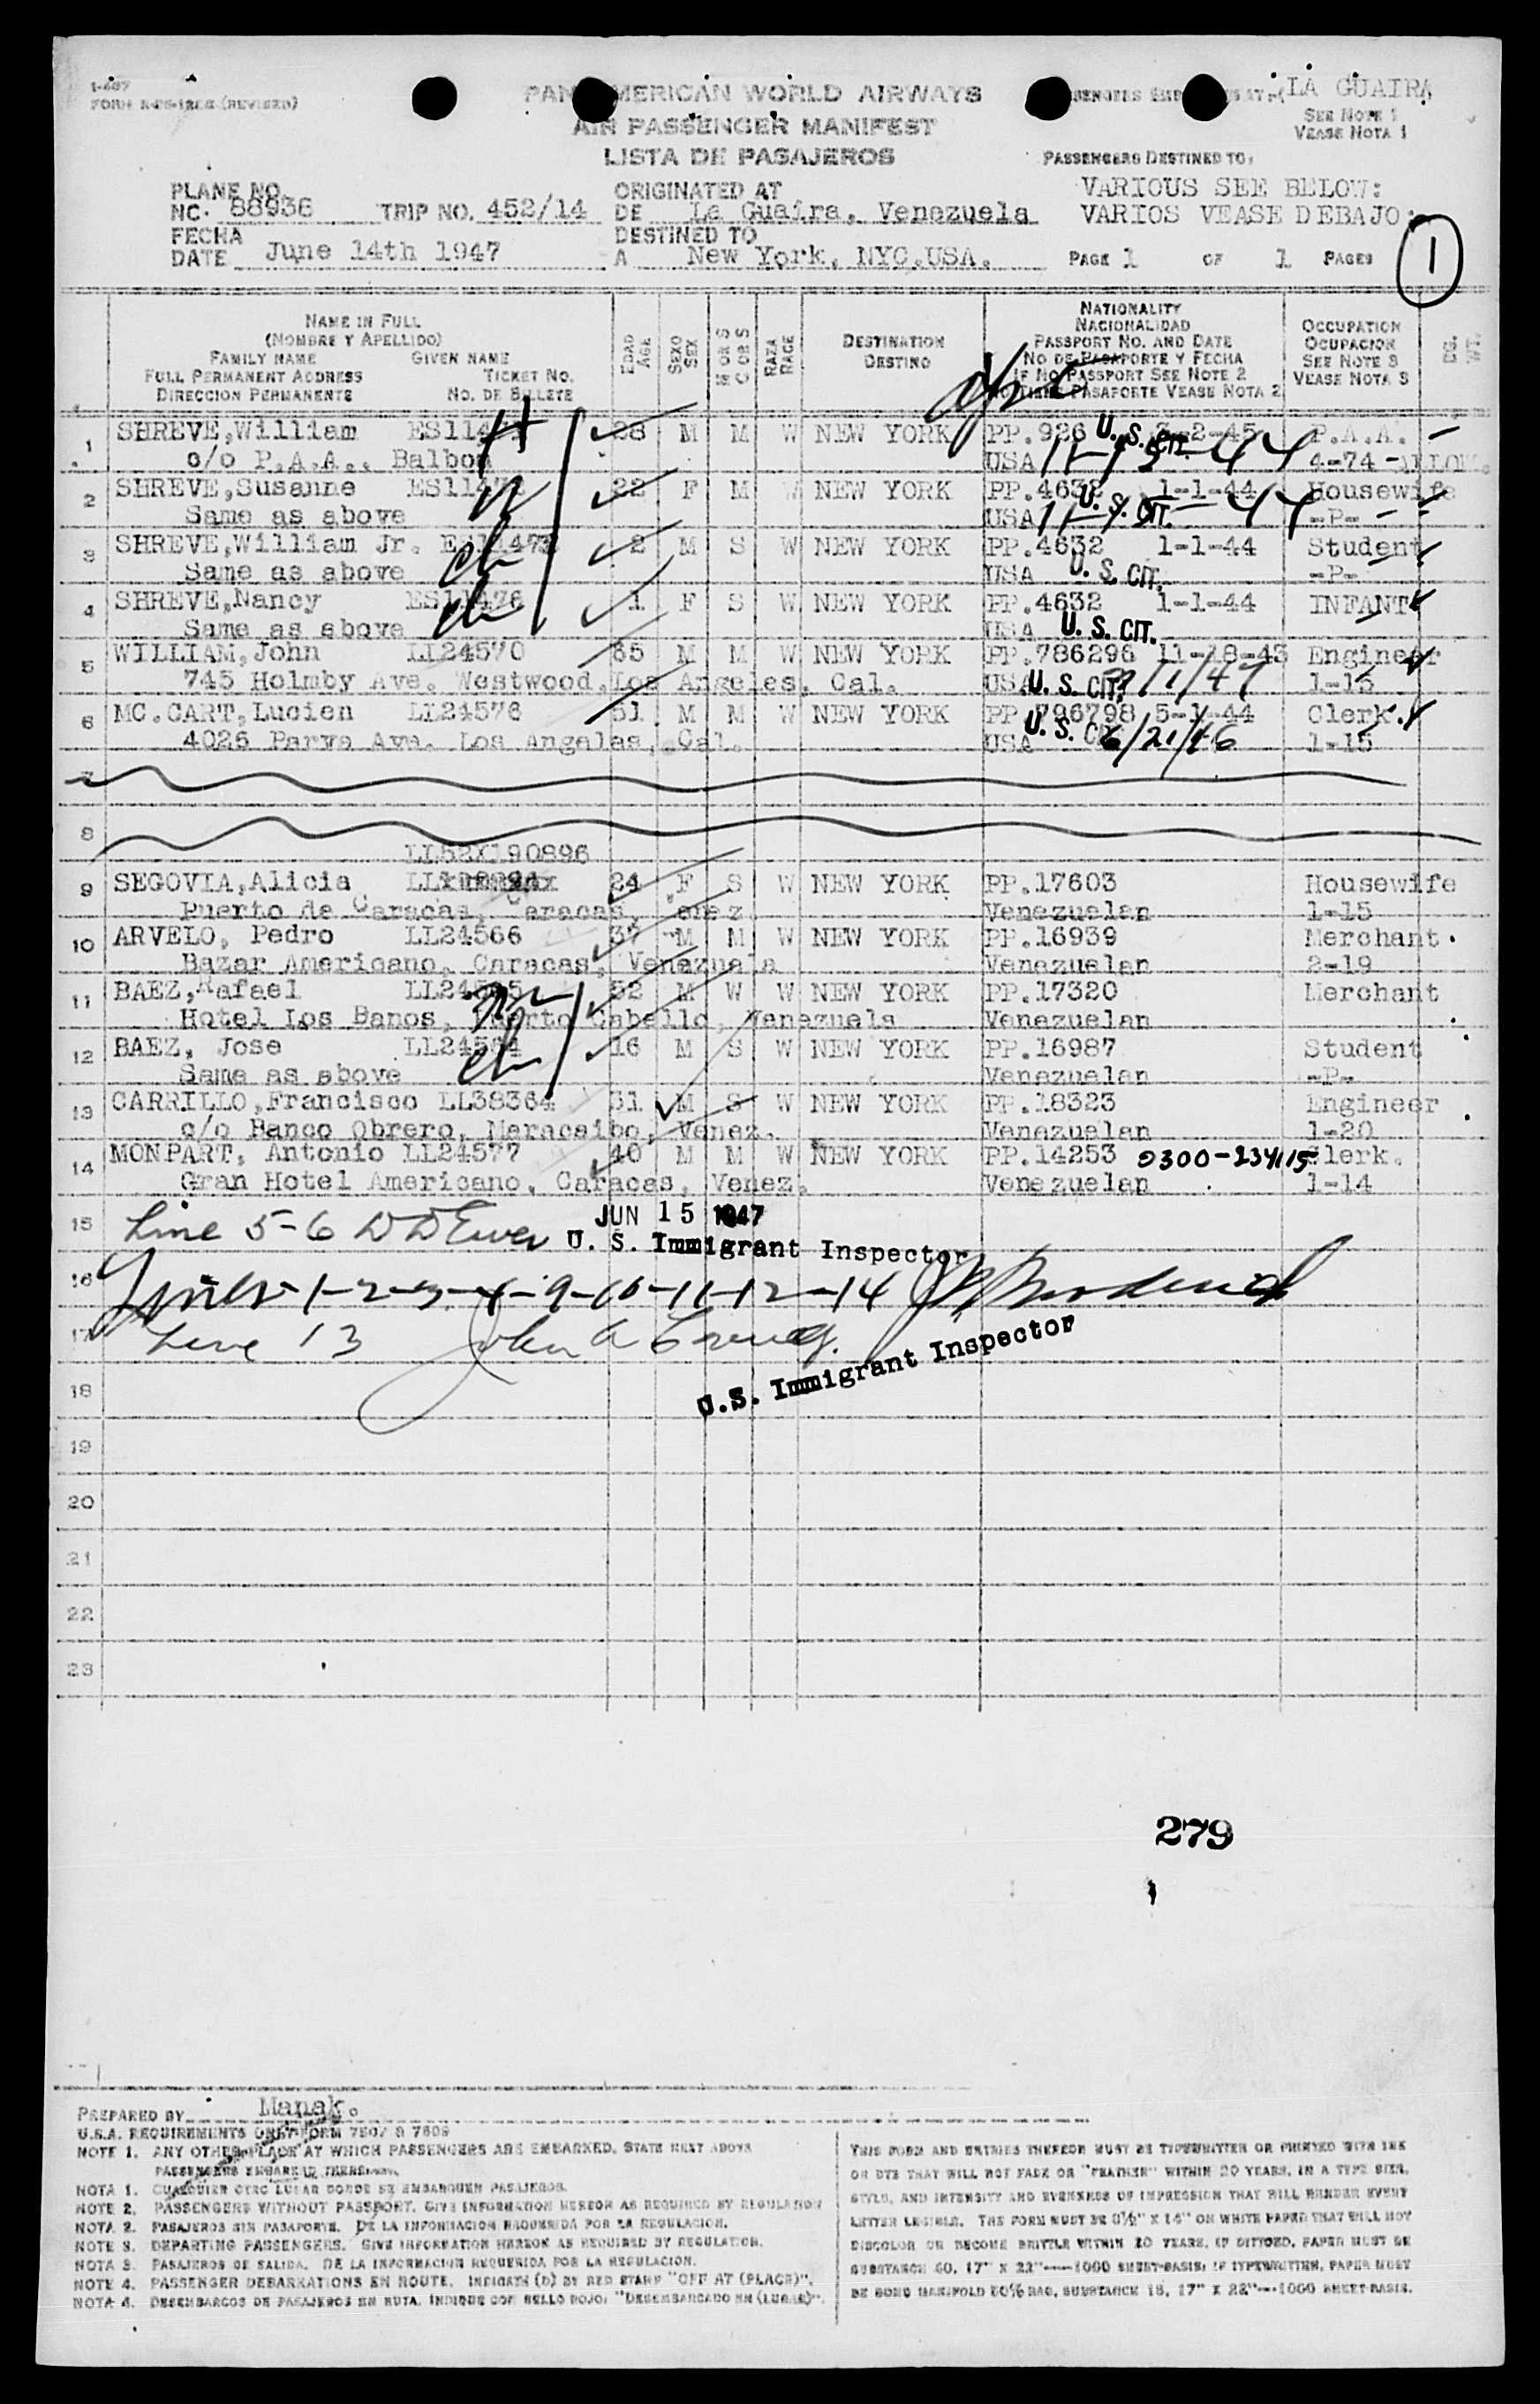 I-487
FORM (REVISED)
PAN AMERICAN WORLD AIRWAYS
AIR PASSENGER MANIFEST
LISTA DE PASAJEROS
LA GUAIRA
SEE NOTE 1
VEASE NOTA 1
PASSENGERS DESTINED TO:
VARIOUS SEE BELOW:
VARIOS VEASE DEBAJO:
PLANE NO.
NC. 88936 TRIP NO. 452/14
ORIGINATED AT
DE La Guaira, Venezuela
FECHA
DATE June 14th 1947
DESTINED TO
A New York, NYC.USA.
PAGE 1 OF 1 PAGES
1
NAME IN FULL
(NOMBRE Y APELLIDO)
FAMILY NAME GIVEN NAME
FULL PERMANENT ADDRESS TICKET NO.
DIRECCION PERMANENTE NO. DE BILLETE
EDAD AGE
SEXO SEX
M OR S
C OR S
RAZA RACE
DESTINATION
DESTINO
NATIONALITY
NACIONALIDAD
PASSPORT NO. AND DATE
NO DE PASAPORTE Y FECHA
IF NO PASSPORT SEE NOTE 2
PASAPORTE VEASE NOTA 2
OCCUPATION
OCUPACION
SEE NOTE 3
VEASE NOTA 3
WT.
1 SHREVE,William 28 M M W NEW YORK PP.926 3-2-45 P.A.A.
c/o P.A.A., Balboa USA U. S. CIT. 4-74
2 SHREVE,Susanne 22 F M W NEW YORK PP.4632 1-1-44 Housewife
Same as above USA U. S. CIT. -P-
3 SHREVE,William Jr. 2 M S W NEW YORK PP.4632 1-1-44 Student
Same as above USA U. S. CIT. -P-
4 SHREVE,Nancy ES11476 1 F S W NEW YORK PP.4632 1-1-44 INFANT
Same as above USA U. S. CIT.
5 WILLIAM,John LL24570 65 M M W NEW YORK PP.786296 11-18-43 Engineer
745 Holmby Ave. Westwood,Los Angeles, Cal. USA U. S. CIT. 1-15
6 MC.CART,Lucien LL24576 51 M M W NEW YORK PP.796798 5-1-44 Clerk.
4026 Ave. Los Angeles, Cal. USA U. S. CIT. 6/21/46 1-15
7
8
LL52X190896
9 SEGOVIA,Alicia 24 F S W NEW YORK PP.17603 Housewife
Puerto de Caracas, Caracas, Venez. Venezuelan 1-15
10 ARVELO, Pedro LL24566 37 M M W NEW YORK PP.16939 Merchant
Bazar Americano, Caracas, Venezuela Venezuelan 2-19
11 BAEZ,Rafael 52 M W W NEW YORK PP.17320 Merchant
Hotel Los Banos, Puerto Cabello, Venezuela Venezuelan
12 BAEZ, Jose LL24564 16 M S W NEW YORK PP.16987 Student
Same as above Venezuelan -P-
13 CARRILLO,Francisco LL38364 31 M S W NEW YORK PP.18323 Engineer
c/o Banco Obrero, Maracaibo, Venez. Venezuelan 1-20
14 MONPART, Antonio LL24577 40 M M W NEW YORK PP.14253 0300-234115 Clerk.
Gran Hotel Americano, Caracas, Venez. Venezuelan 1-14
15 Line 5-6
JUN 15 1947
U. S. Immigrant Inspector
16 Lines-1-2-3-4-9-10-11-12-14
17 Line 13 John A
U.S. Immigrant Inspector
18
19
20
21
22
23
279
PREPARED BY Manak.
U.S.A. REQUIREMENTS ONLY FORM 7507 & 7509
NOTE 1. ANY OTHER PLACE AT WHICH PASSENGERS ARE EMBARKED, STATE NEXT ABOVE
PASSENGERS EMBARKED THERE
NOTA 1. CUALQUIER OTRO LUGAR DONDE SE EMBARQUEN PASAJEROS.
NOTE 2. PASSENGERS WITHOUT PASSPORT. GIVE INFORMATION HEREON AS REQUIRED BY REGULATION
NOTA 2. PASAJEROS SIN PASAPORTE. DE LA INFORMACION REQUERIDA POR LA REGULACION.
NOTE 3. DEPARTING PASSENGERS. GIVE INFORMATION HEREON AS REQUIRED BY REGULATION.
NOTA 3. PASAJEROS DE SALIDA. DE LA INFORMACION REQUERIDA POR LA REGULACION.
NOTE 4. PASSENGER DEBARKATIONS EN ROUTE. INDICATE (D) BY RED STAMP "OFF AT (PLACE)".
NOTA 4. DESEMBARCOS DE PASAJEROS EN RUTA. INDIQUE CON SELLO ROJO: "DESEMBARCADO EN (LUGAR)".
THIS FORM AND ENTRIES THEREON MUST BE TYPEWRITTEN OR PRINTED WITH INK
OR DYE THAT WILL NOT FADE OR "FEATHER" WITHIN 20 YEARS, IN A TYPE SIZE,
STYLE, AND INTENSITY AND EVENNESS OF IMPRESSION THAT WILL RENDER EVERY
LETTER LEGIBLE. THE FORM MUST BE 8½" X 14" ON WHITE PAPER THAT WILL NOT
DISCOLOR OR BECOME BRITTLE WITHIN 20 YEARS. IF DITTOED, PAPER MUST BE
SUBSTANCE 60, 17" X 22"—1000 SHEET-BASIS; IF TYPEWRITTEN, PAPER MUST
BE BOND MANIFOLD 50% RAG, SUBSTANCE 16, 17" X 22"—1000 SHEET-BASIS.